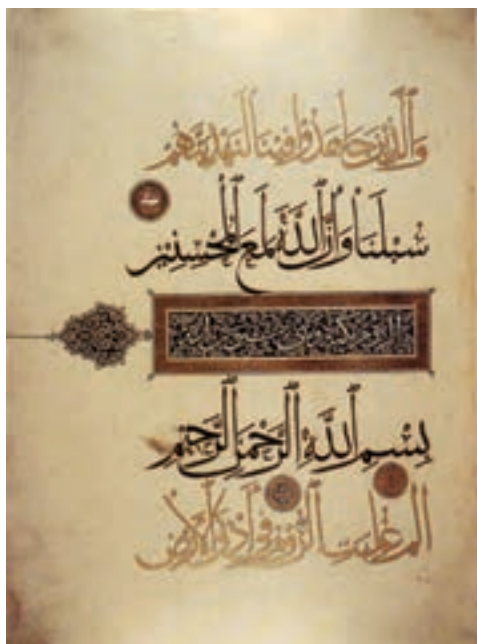 وَالَّذِينَ جَاهَدُوا فِينَا لَنَهْدِيَنَّهُمْ
سُبُلَنَا وَإِنَّ اللَّهَ لَمَعَ الْمُحْسِنِينَ
بِسْمِ اللَّهِ الرَّحْمَٰنِ الرَّحِيمِ
الم غُلِبَتِ الرُّومُ فِي أَدْنَى الْأَرْضِ